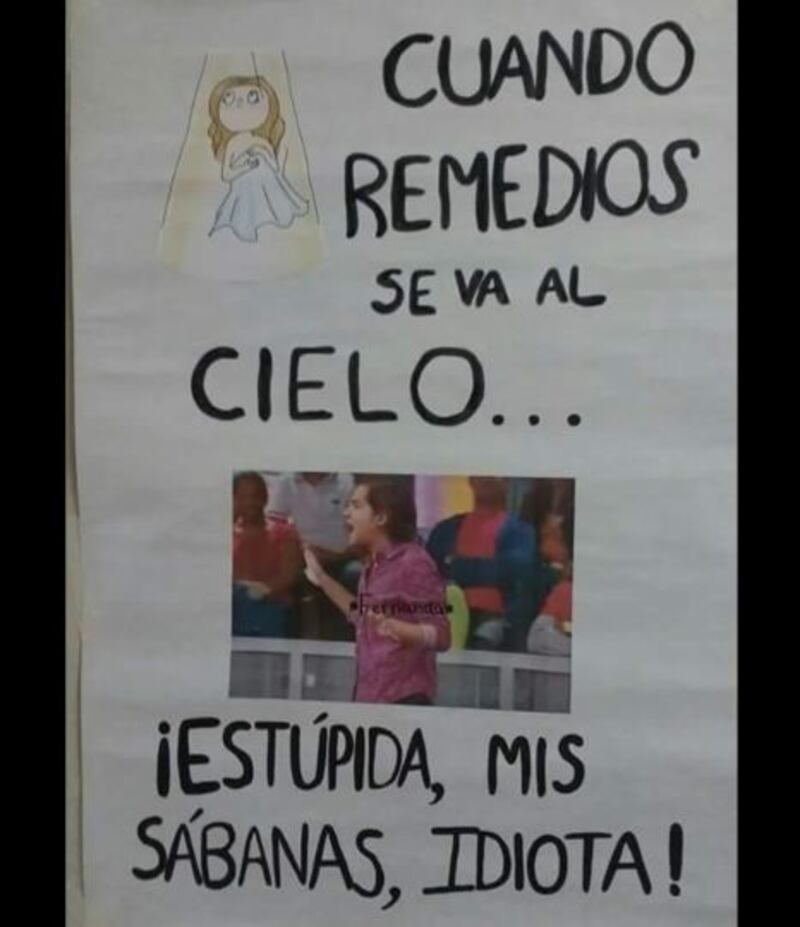 CUANDO
REMEDIOS
SE VA AL
CIELO...
*Fernanda*
¡ESTÚPIDA, MIS
SÁBANAS, IDIOTA!